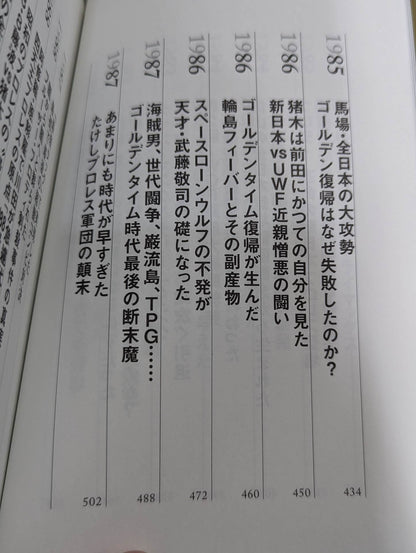 1985
馬場・全日本の大攻勢
ゴールデン復帰はなぜ失敗したのか?
434
1986
猪木は前田にかつての自分を見た
新日本vsUWF近親憎悪の闘い
450
1986
ゴールデンタイム復帰が生んだ
輪島フィーバーとその副産物
460
1986
スペースローンウルフの不発が
天才・武藤敬司の礎になった
472
1987
海賊男、世代闘争、巌流島、TPG……
ゴールデンタイム時代最後の断末魔
488
1987
あまりにも時代が早すぎた
たけしプロレス軍団の顛末
502